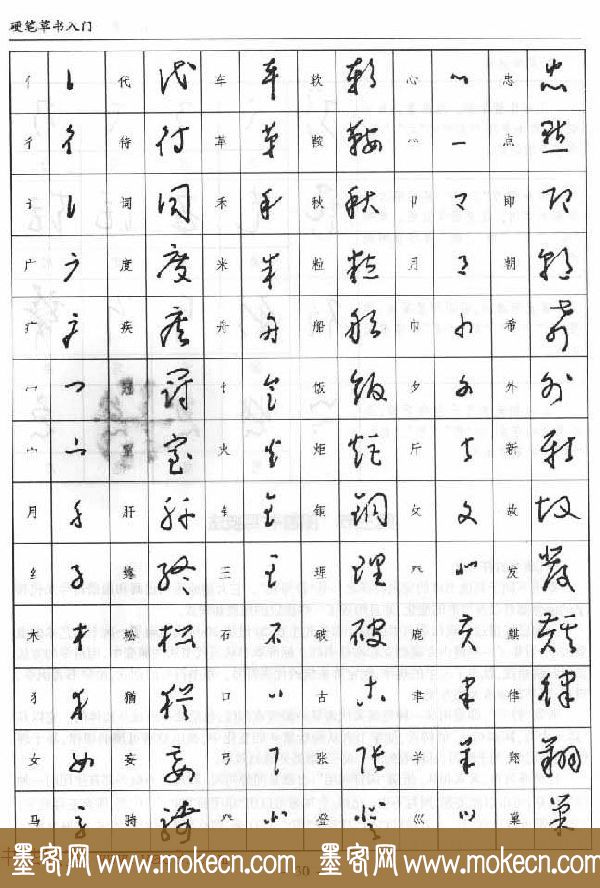 硬笔草书入门
亻 代 车 软 心 忠
彳 待 革 鞍 点
讠 词 禾 秋 卩 即
广 度 米 粒 月 朝
疒 疾 舟 船 巾 希
冖 冠 饣 饭 夕 外
宀 室 火 炬 斤 新
月 肝 钅 铜 攵 故
纟 终 王 理 癶 发
木 松 石 破 鹿 麒
犭 犹 口 古 聿 律
女 妄 弓 张 羊 翔
马 骑 癶 登 巛 巢
墨客网 www.mokecn.com 墨客网 www.mokecn.com